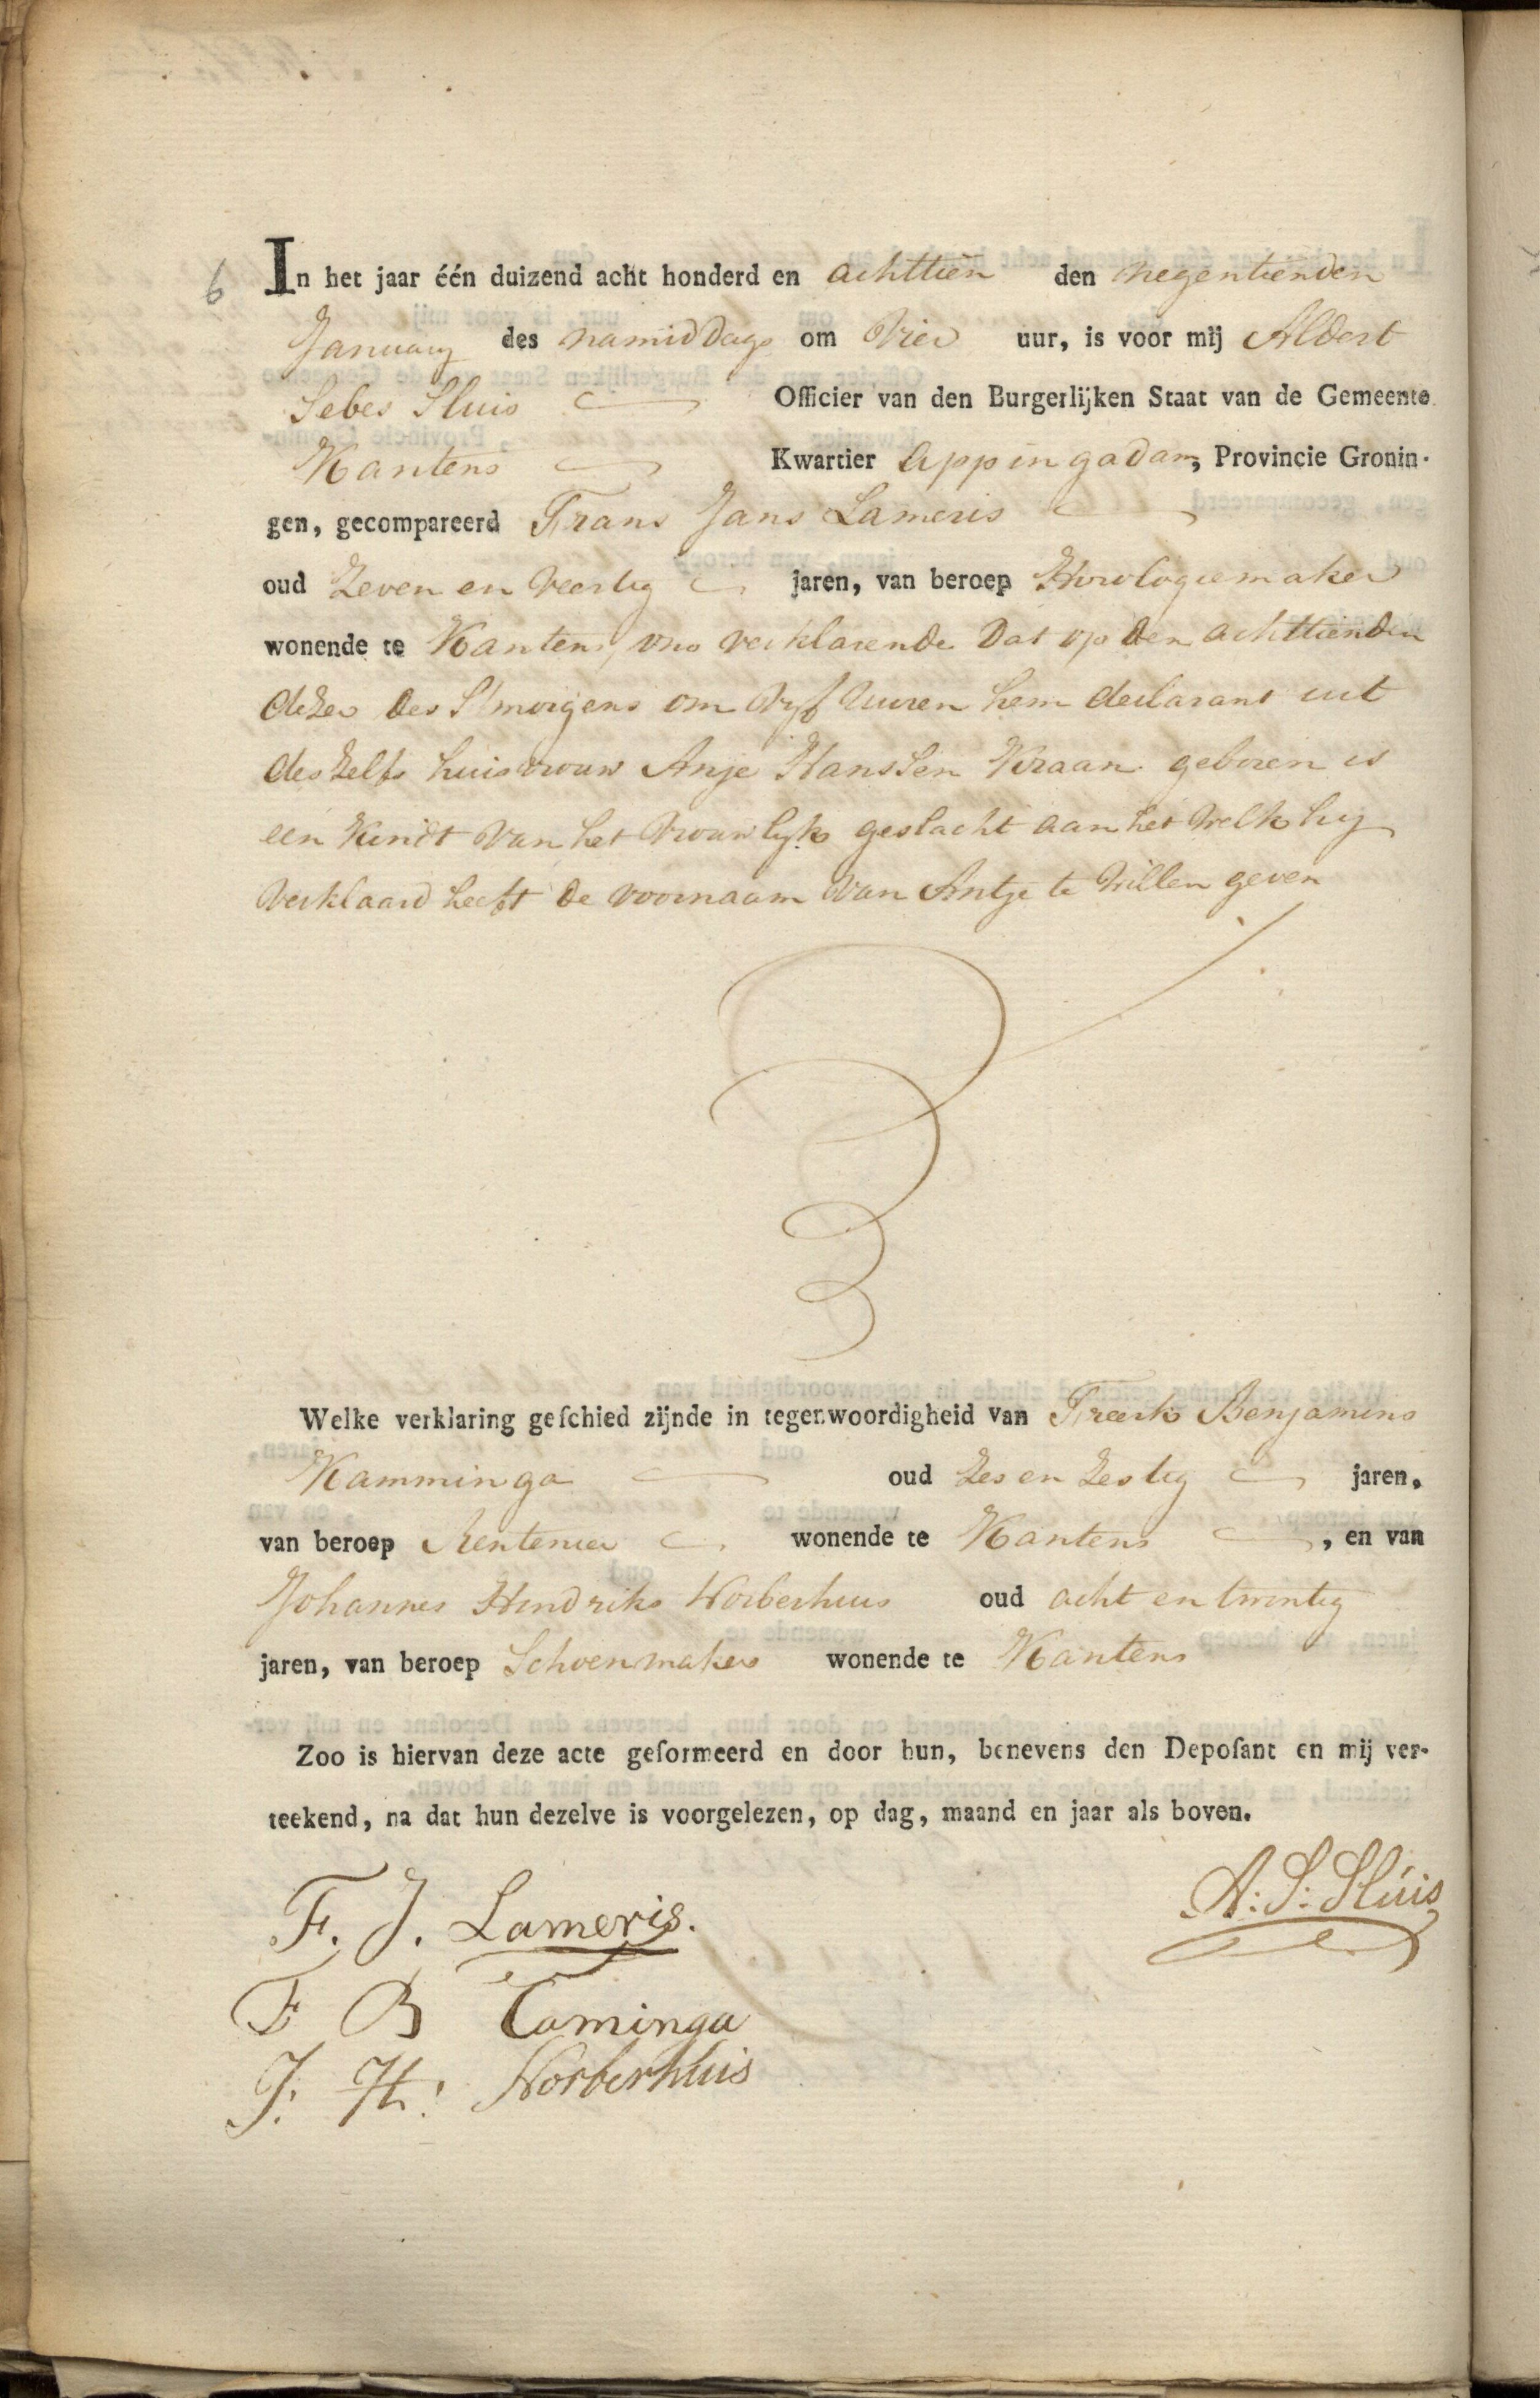 6
In het jaar één duizend acht honderd en achttien den negentienden
January des namiddags om vier uur, is voor mij Aldert
Sebes Sluis Officier van den Burgerlijken Staat van de Gemeente
Kantens Kwartier Appingadam, Provincie Gronin-
gen, gecompareerd Frans Jans Lameris
oud Zeven en Veertig jaren, van beroep Horologiemaker
wonende te Kantens, ons verklarende Dat op den achttienden
dezer des S'morgens om Vyf Uuren hem declarant uit
deszelfs huisvrouw Anje Hanssen Kraan geboren is
een Kindt Van het Vrouwlyk geslacht aan het Welk hy
Verklaard heeft de voornaam Van Antje te Willen geven
Welke verklaring geschied zijnde in tegenwoordigheid van Freerk Benjamins
Kamminga oud Zes en Zestig jaren,
van beroep Rentenier wonende te Kantens , en van
Johannes Hindriks Norberhuis oud acht en twintig
jaren, van beroep Schoenmaker wonende te Kantens
Zoo is hiervan deze acte geformeerd en door hun, benevens den Deposant en mij ver-
teekend, na dat hun dezelve is voorgelezen, op dag, maand en jaar als boven.
A: S: Sluis
F. J. Lameris.
F B Caminga
J: H: Norberhuis